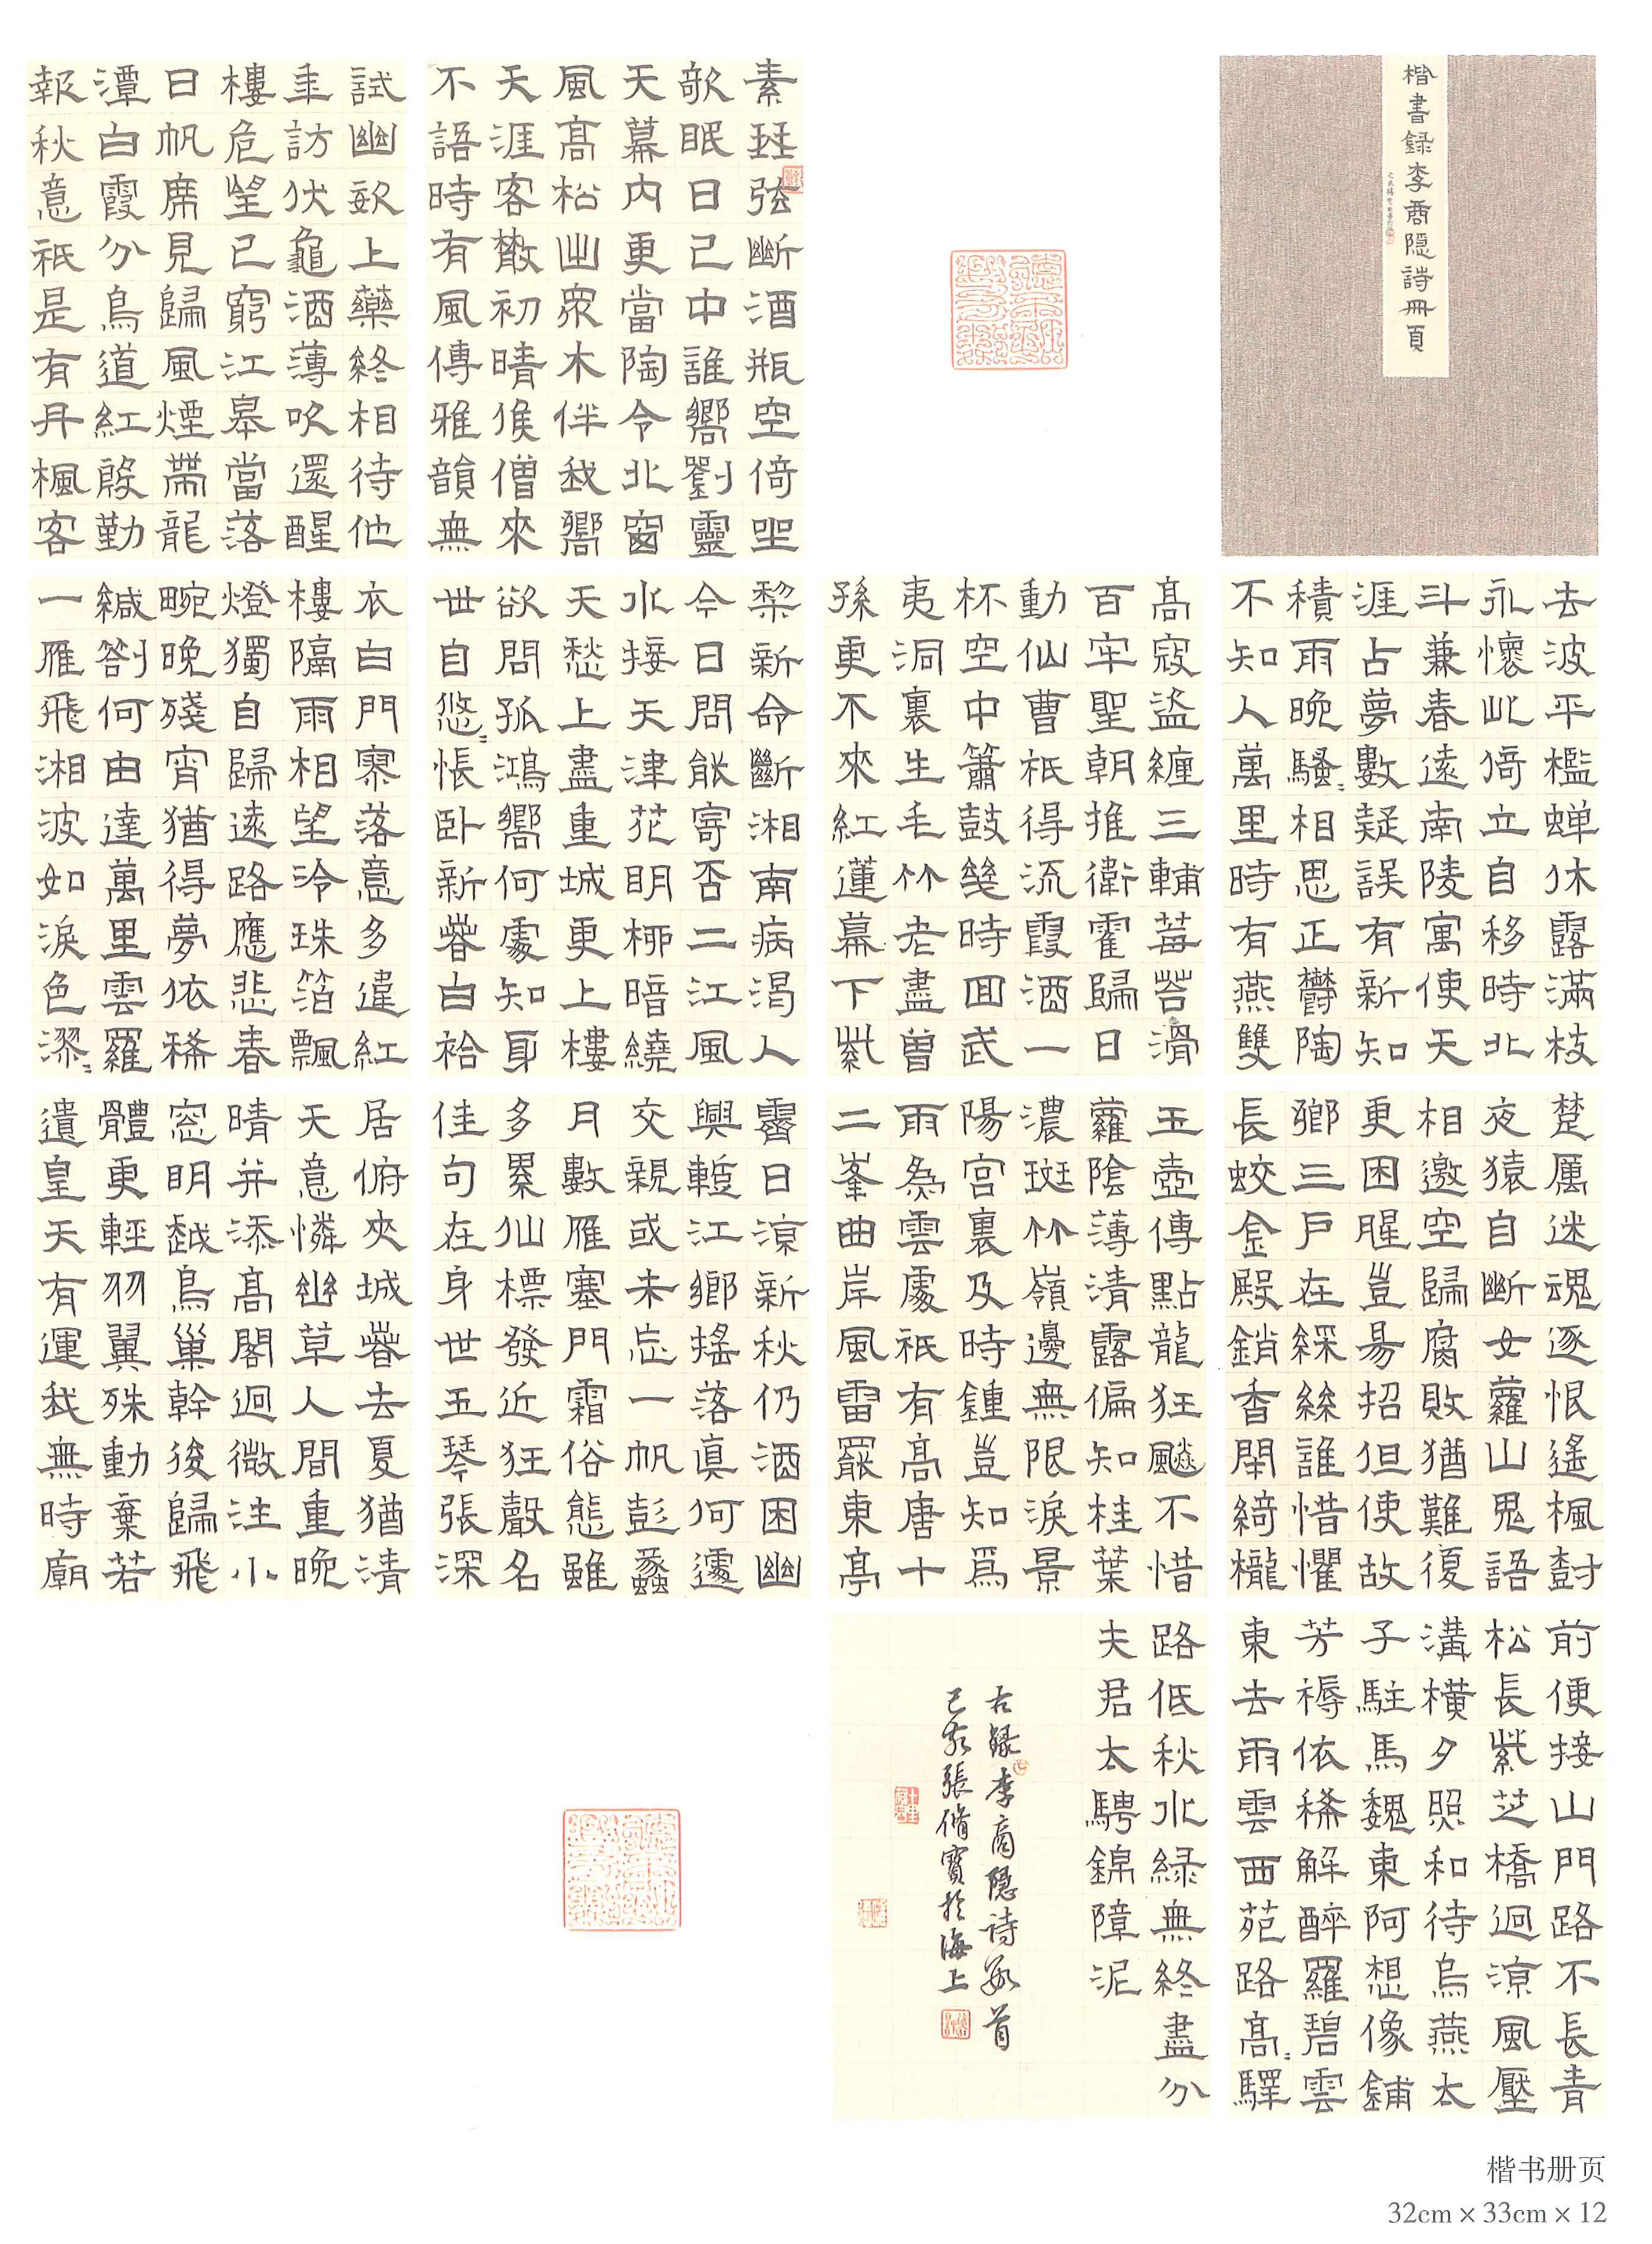 楷書録李商隐詩冊頁
素珡弦斷酒瓶空倚坐
欹眠日已中誰嚮劉靈
天幕内更當陶令北窗
風高松山衆木伴我嚮
天涯客散初晴候僧來
不語時有風傳雅韻無
試幽欲上藥終相待他
年訪伏龜酒薄吹還醒
樓危望已窮江皋當落
日帆席見歸風煙帶龍
潭白霞分鳥道紅殷勤
報秋意祇是有丹楓客
去波平檻蟬休露滿枝
永懷此倚立自移時北
斗兼春遠南陵寓使天
涯占夢數疑誤有新知
積雨晚騷〻相思正鬱陶
不知人萬里時有燕雙
高寇盜纏三輔莓苔滑
百牢聖朝推衛霍歸日
動仙曹祇得流霞酒一
杯空中簫鼓幾時回武
夷洞裏生毛竹老盡曾
孫更不來紅蓮幕下紫
梨新命斷湘南病渴人
今日問能寄否二江風
水接天津花明柳暗繞
天愁上盡重城更上樓
欲問孤鴻嚮何處知身
世自悠〻悵臥新春白袷
衣白門寥落意多違紅
樓隔雨相望冷珠箔飄
燈獨自歸遠路應悲春
畹晚殘宵猶得夢依稀
緘劄何由達萬里雲羅
一雁飛湘波如淚色漻〻
楚厲迷魂逐恨遙楓樹
夜猿自斷女蘿山鬼語
相邀空歸腐敗猶難復
更困腥豈易招但使故
鄉三戶在綵絲誰惜懼
長蛟金殿銷香閉綺櫳
玉壺傳點龍狂飈不惜
蘿陰薄清露偏知桂葉
濃斑竹嶺邊無限淚景
陽宮裏及時鍾豈知爲
雨為雲處祇有高唐十
二峯曲岸風雷罷東亭
霽日涼新秋仍酒困幽
興蹔江鄉搖落真何遽
交親或未忘一帆彭蠡
月數雁塞門霜俗態雖
多累仙標發近狂聲名
佳句在身世玉琴張深
居俯夾城春去夏猶清
天意憐幽草人間重晚
晴并添高閣迥微注小
窓明越鳥巢幹後歸飛
體更輕羽翼殊動棄若
遺皇天有運我無時廟
前便接山門路不長青
松長紫芝橋迥涼風壓
溝橫夕照和待烏燕太
子駐馬魏東阿想像鋪
芳褥依稀解醉羅碧雲
東去雨雲西苑路高〻驛
路低秋水綠無終盡分
夫君太騁錦障泥
右録李商隱詩數首
己亥張脩寶於海上
楷书册页
32cm × 33cm × 12